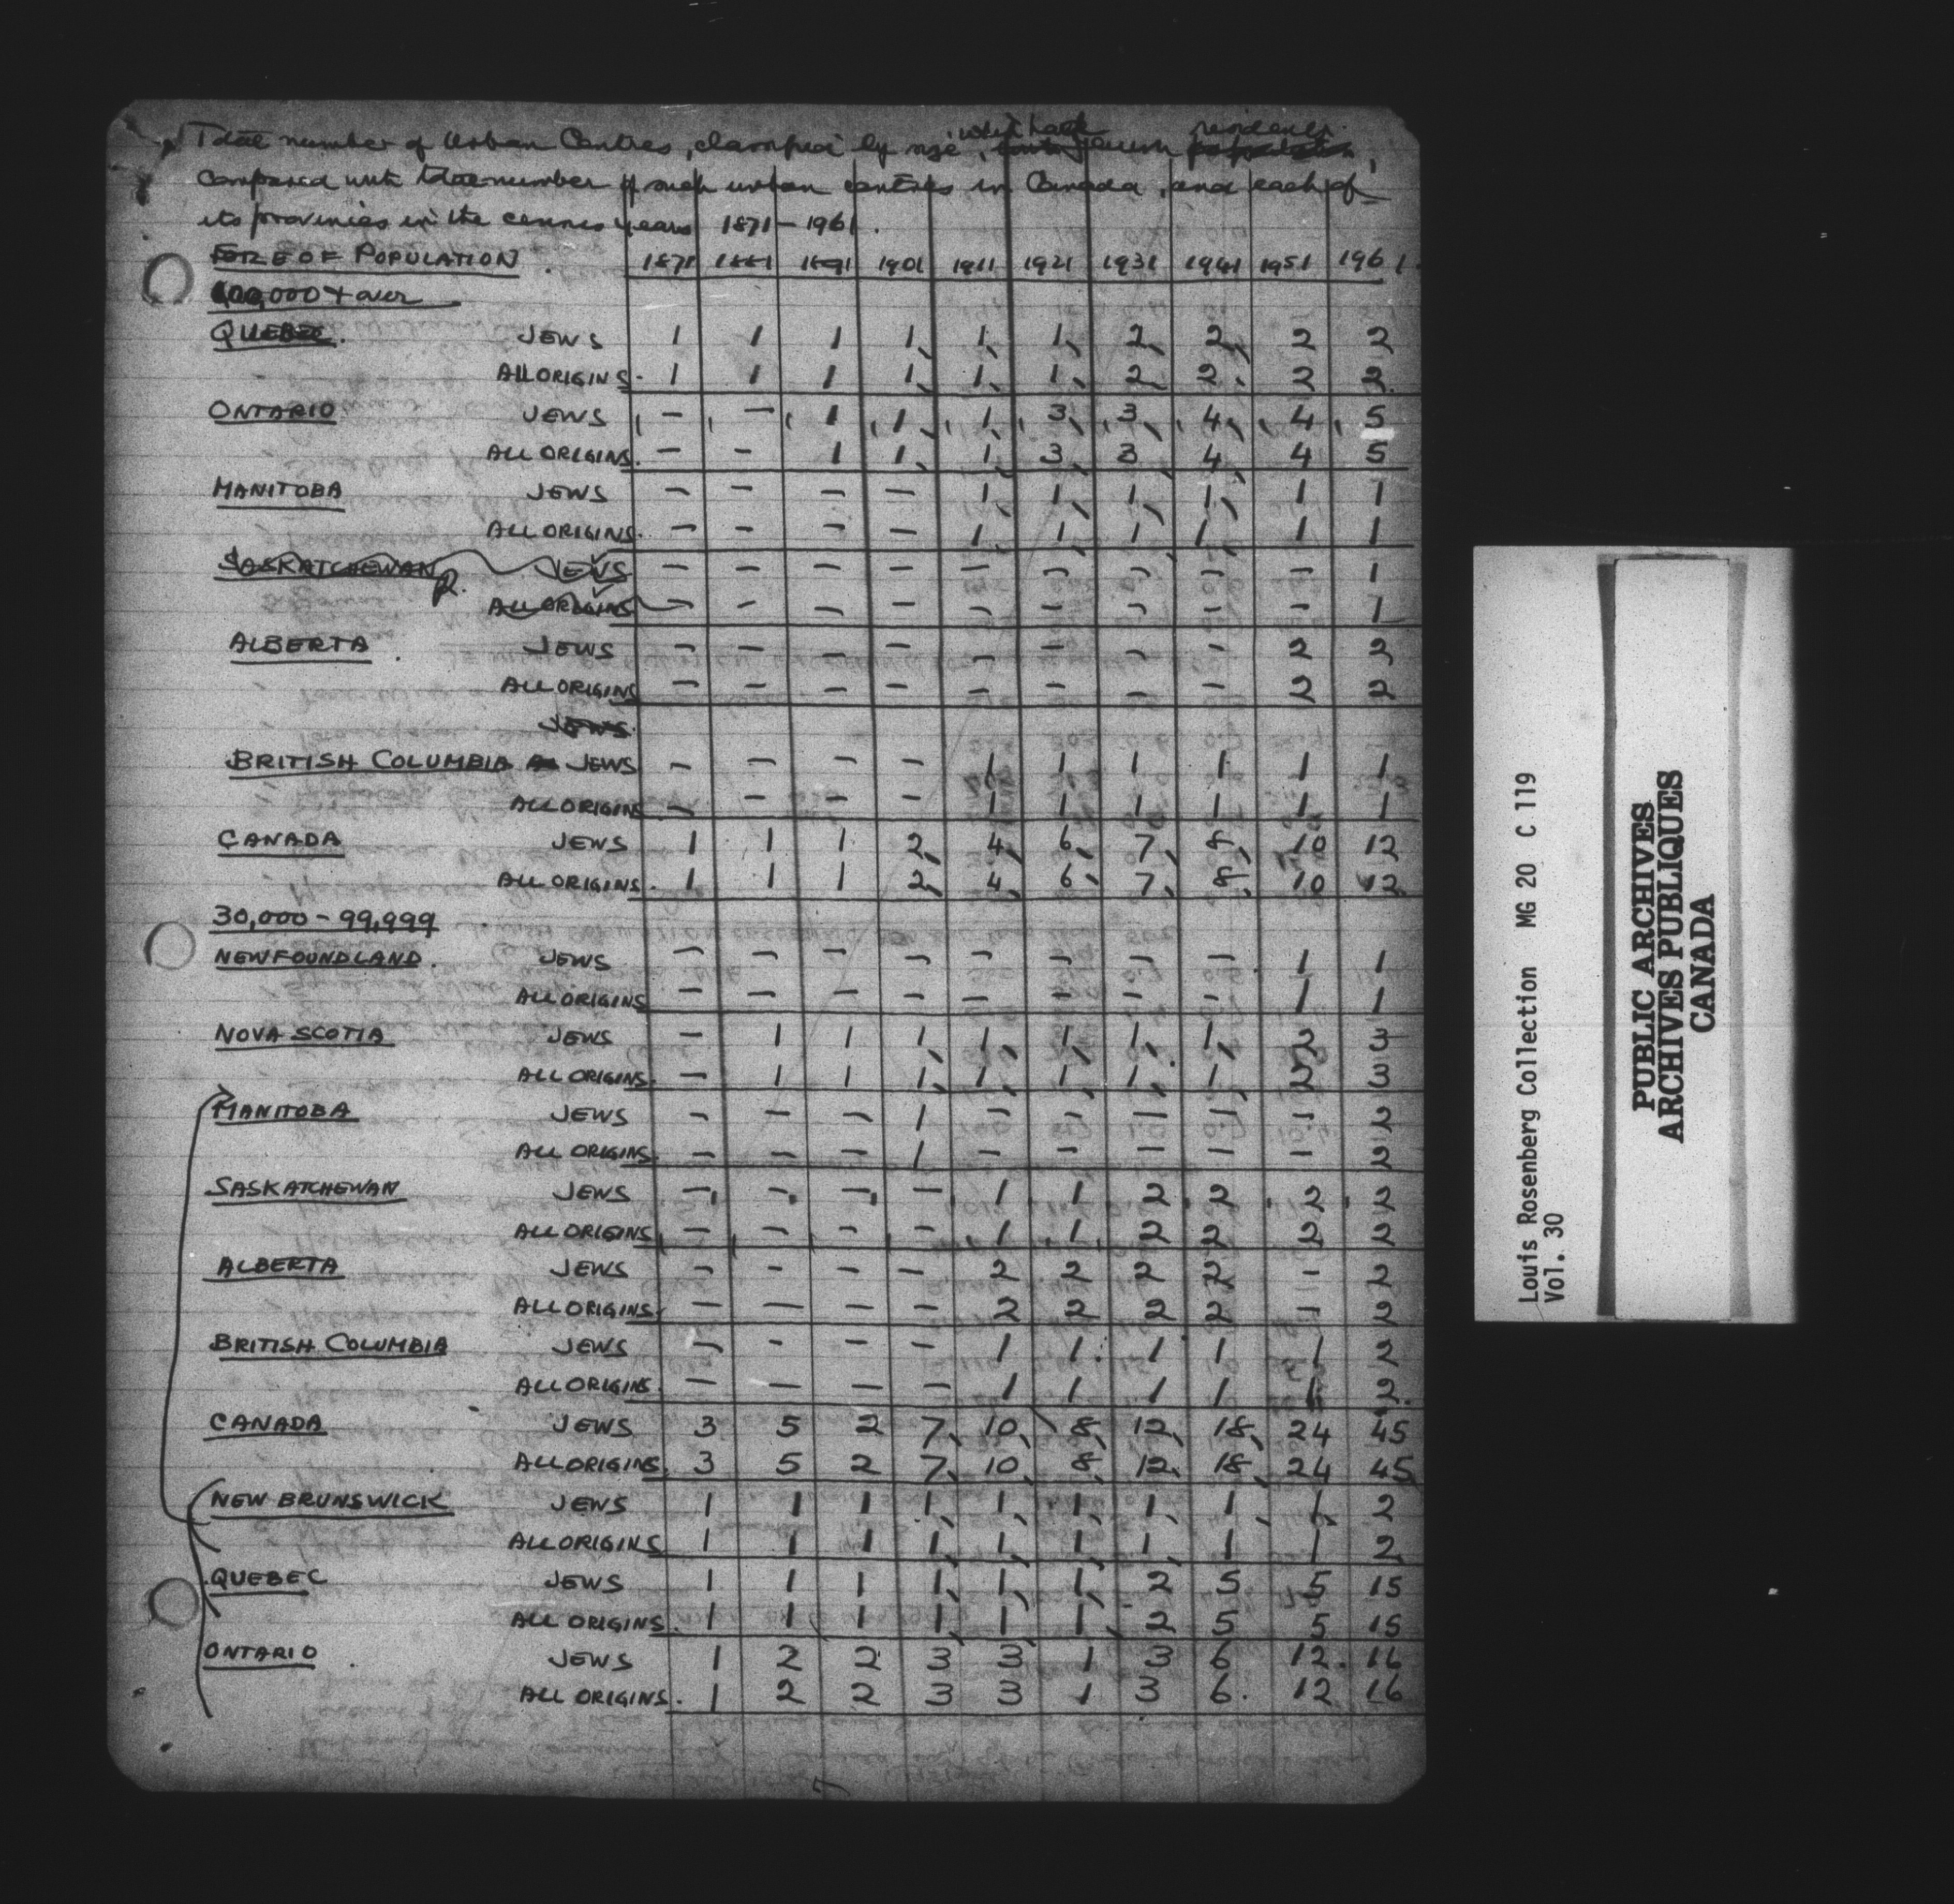 Total number of Urban Centres, classified by size, which had Jewish residents,
compared with total number of such urban centres in Canada, and each of
its provinces in the census years 1871-1961.
SIZE OF POPULATION. 1871 1881 1891 1901 1911 1921 1931 1941 1951 1961.
100,000 + over
QUEBEC. JEWS 1 1 1 1 1 1 2 2 2 2
ALL ORIGINS. 1 1 1 1 1 1 2 2 2 2
ONTARIO JEWS — — 1 1 1 3 3 4 4 5
ALL ORIGINS. — — 1 1 1 3 3 4 4 5
MANITOBA JEWS — — — — 1 1 1 1 1 1
ALL ORIGINS. — — — — 1 1 1 1 1 1
SASKATCHEWAN JEWS — — — — — — — — — 1
ALL ORIGINS — — — — — — — — — 1
ALBERTA. JEWS — — — — — — — — 2 2
ALL ORIGINS — — — — — — — — 2 2
JEWS.
BRITISH COLUMBIA JEWS — — — — 1 1 1 1 1 1
ALL ORIGINS — — — — 1 1 1 1 1 1
CANADA JEWS 1 1 1 2 4 6 7 8 10 12
ALL ORIGINS. 1 1 1 2 4 6 7 8 10 12
30,000 - 99,999
NEWFOUNDLAND. JEWS — — — — — — — — 1 1
ALL ORIGINS — — — — — — — — 1 1
NOVA SCOTIA JEWS — 1 1 1 1 1 1 1 2 3
ALL ORIGINS. — 1 1 1 1 1 1 1 2 3
MANITOBA JEWS — — — 1 — — — — — 2
ALL ORIGINS. — — — 1 — — — — — 2
SASKATCHEWAN JEWS — — — — 1 1 2 2 2 2
ALL ORIGINS — — — — 1 1 2 2 2 2
ALBERTA JEWS — — — — 2 2 2 2 — 2
ALL ORIGINS. — — — — 2 2 2 2 — 2
BRITISH COLUMBIA JEWS — — — — 1 1 1 1 1 2
ALL ORIGINS. — — — — 1 1 1 1 1 2
CANADA JEWS 3 5 2 7 10 8 12 18 24 45
ALL ORIGINS. 3 5 2 7 10 8 12 18 24 45
NEW BRUNSWICK JEWS 1 1 1 1 1 1 1 1 1 2
ALL ORIGINS 1 1 1 1 1 1 1 1 1 2
QUEBEC JEWS 1 1 1 1 1 1 2 5 5 15
ALL ORIGINS. 1 1 1 1 1 1 2 5 5 15
ONTARIO. JEWS 1 2 2 3 3 1 3 6 12 16
ALL ORIGINS. 1 2 2 3 3 1 3 6 12 16
Louis Rosenberg Collection MG 20 C 119
Vol. 30
PUBLIC ARCHIVES
ARCHIVES PUBLIQUES
CANADA